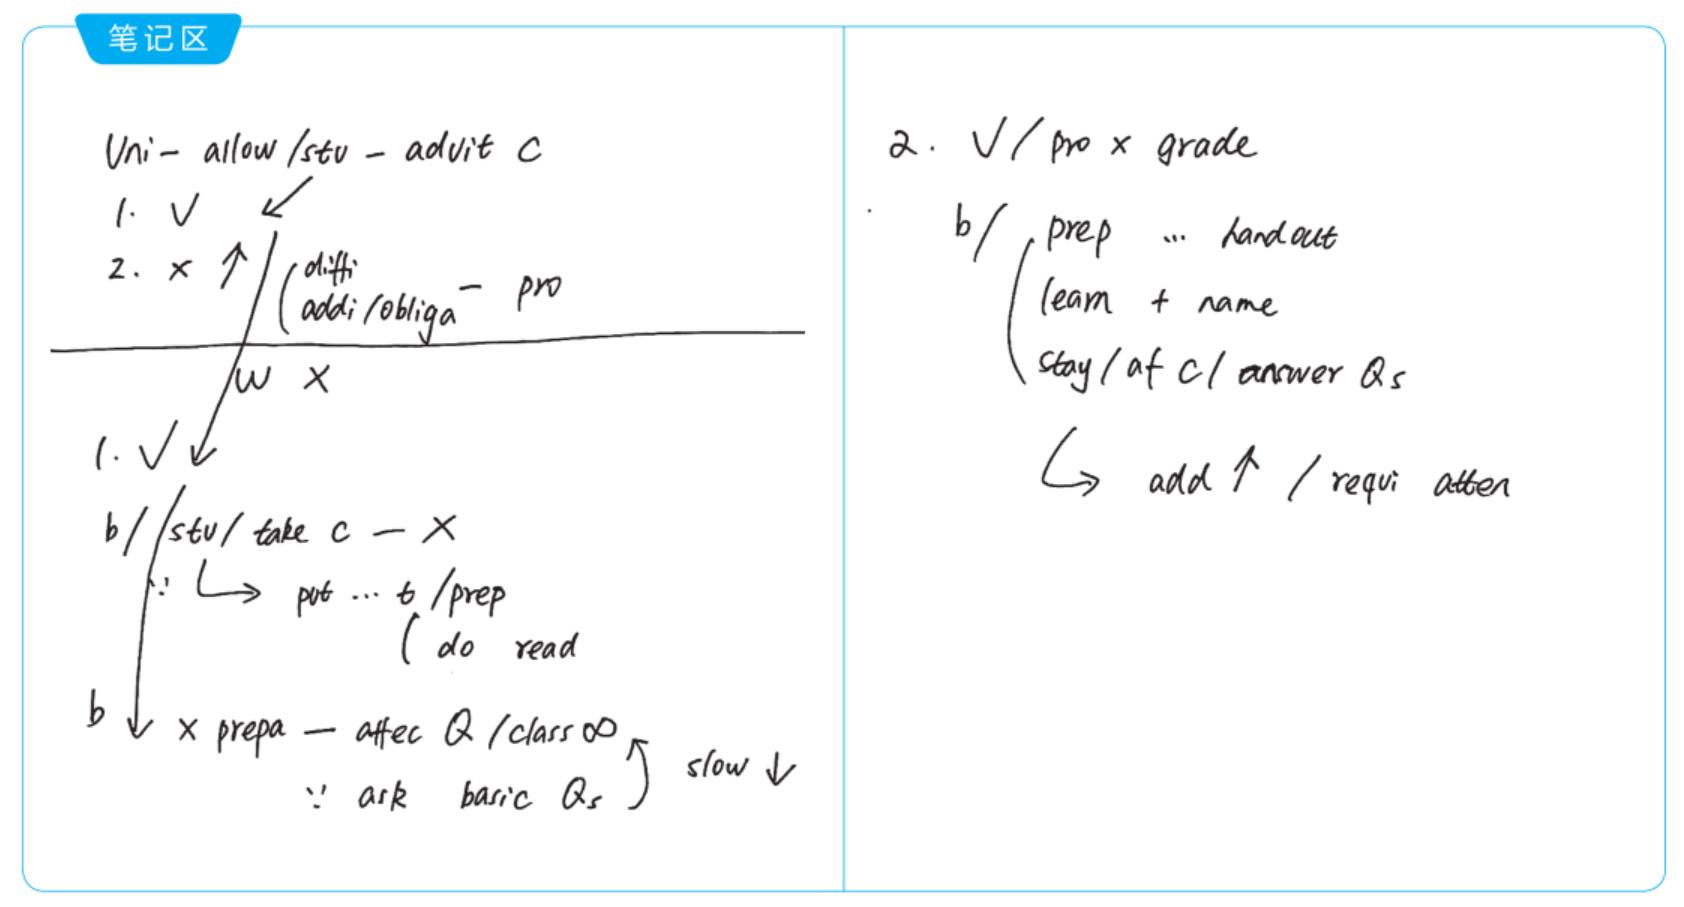 笔记区
Uni - allow / stu - advit C
1. √ ↙
2. × ↑ ( diffi
addi / obliga - pro
W X
1. √
b / / stu / take c — X
∵ ↳ put ... t / prep
( do read
b ↓ × prepa — affec Q / class ∞
slow ↓
∵ ask basic Qs
2. √ / pro × grade
b / prep ... handout
learn + name
stay / af C / answer Qs
↳ add ↑ / requi atten